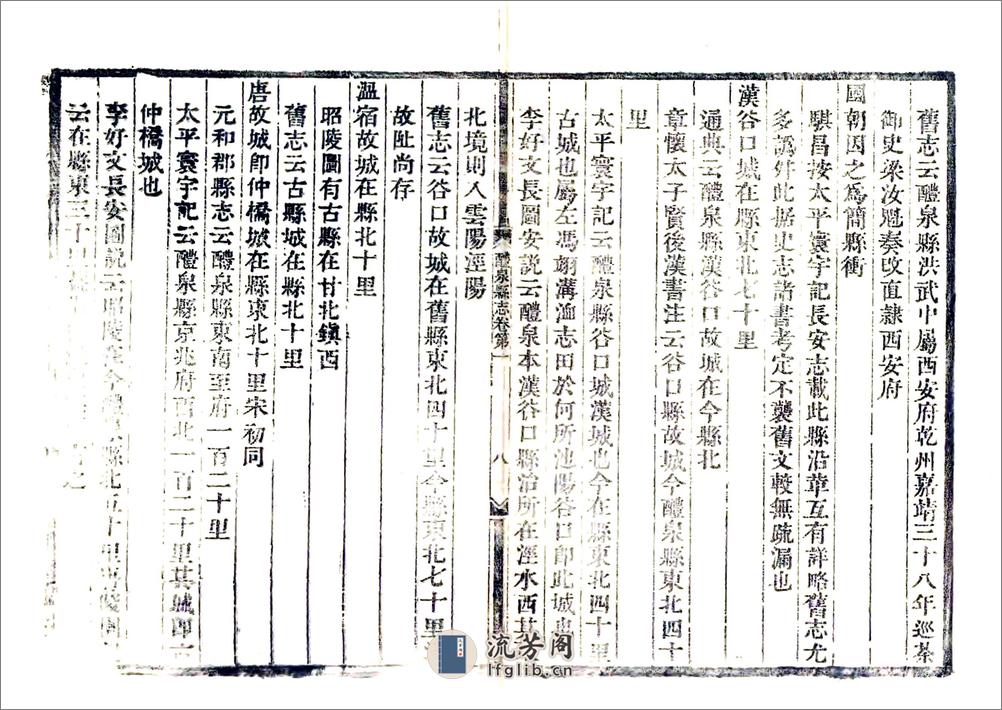 舊志云醴泉縣洪武中屬西安府乾州嘉靖三十八年巡茶
御史梁汝魁奏改直隸西安府
國朝因之爲簡縣衝
騏昌按太平寰宇記長安志載此縣沿革互有詳略舊志尤
多譌舛此据史志諸書考定不襲舊文較無疏漏也
漢谷口城在縣東北七十里
通典云醴泉縣漢谷口故城在今縣北
章懷太子賢後漢書注云谷口縣故城今醴泉縣東北四十
里
太平寰宇記云醴泉縣谷口城漢城也今在縣東北四十里
古城也屬左馮翊溝洫志田於何所池陽谷口卽此城
李好文長圖安説云醴泉本漢谷口縣治所在涇水西其
醴泉縣志卷第一
八
北境則入雲陽涇陽
舊志云谷口故城在舊縣東北四十里今縣東北七十里
故址尚存
溫宿故城在縣北十里
昭陵圖有古縣在甘北鎭西
舊志云古縣城在縣北十里
唐故城卽仲橋城在縣東北十里宋初同
元和郡縣志云醴泉縣東南至府一百二十里
太平寰宇記云醴泉縣京兆府西北一百二十里其城卽
仲橋城也
李好文長安圖説云昭陵在今醴泉縣北五十里
云在縣東三十
流芳阁
lfglib.cn